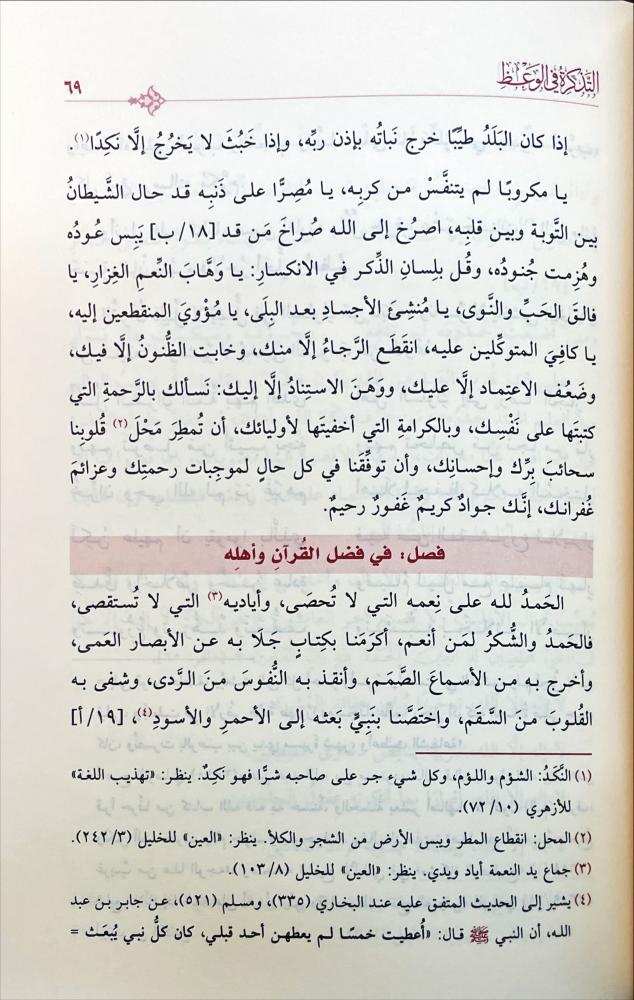 التذكرة في الوعظ
٦٩
إذا كان البَلَدُ طيِّبًا خرج نَباتُه بإذن ربِّه، وإذا خَبُثَ لا يَخرُجُ إلَّا نَكِدًا(١).
يا مكروبًا لم يتنفَّسْ من كربِه، يا مُصِرًّا على ذَنبِه قد حال الشَّيطانُ
بين التَّوبة وبين قلبِه، اصرُخ إلى الله صُراخَ مَن قد [١٨/ ب] يَبِس عُودُه
وهُزِمت جُنودُه، وقُل بلِسانِ الذِّكر في الانكسارِ: يا وَهَّابَ النِّعمِ الغِزارِ، يا
فالقَ الحَبِّ والنَّوى، يا مُنشِئَ الأجسادِ بعد البِلَى، يا مُؤْوِيَ المنقطعين إليه،
يا كافِيَ المتوكِّلين عليه، انقَطَع الرَّجاءُ إلَّا منك، وخابت الظُّنونُ إلَّا فيك،
وضَعُف الاعتِماد إلَّا عليك، ووَهَنَ الاستِنادُ إلَّا إليك: نَسألك بالرَّحمةِ التي
كتبتَها على نَفْسِك، وبالكرامةِ التي أخفيتَها لأوليائك، أن تُمطِرَ مَحْلَ(٢) قُلوبِنا
سحائبَ بِرِّك وإحسانِك، وأن توفِّقَنا في كل حالٍ لموجِبات رحمتِك وعزائمَ
غُفرانك، إنَّك جوادٌ كريمٌ غَفورٌ رحيمٌ.
فصل: في فضل القُرآنِ وأهلِه
الحَمدُ لله على نِعمه التي لا تُحصَى، وأياديه(٣) التي لا تُستقصى،
فالحَمدُ والشُّكرُ لمَن أنعم، أكرَمَنا بكِتابٍ جَلَا به عن الأبصار العَمى،
وأخرج به من الأسماعَ الصَّمَم، وأنقذ به النُّفوسَ مِنَ الرَّدى، وشفى به
القُلوبَ مِنَ السَّقَم، واختَصَّنا بنَبِيٍّ بَعثه إلى الأحمرِ والأسودِ(٤)، [١٩/ أ]
(١) النَّكَدُ: الشؤم واللؤم، وكل شيء جر على صاحبه شرًّا فهو نَكِدٌ. ينظر: «تهذيب اللغة»
للأزهري (١٠/ ٧٢).
(٢) المحل: انقطاع المطر ويبس الأرض من الشجر والكلأ. ينظر: «العين» للخليل (٣/ ٢٤٢).
(٣) جماع يد النعمة أياد ويدي. ينظر: «العين» للخليل (٨/ ١٠٣).
(٤) يشير إلى الحديث المتفق عليه عند البخاري (٣٣٥)، ومسلم (٥٢١)، عن جابر بن عبد
الله، أن النبي ﷺ قال: «أُعطيت خمسًا لم يعطهن أحد قبلي، كان كلُّ نبي يُبعَث =